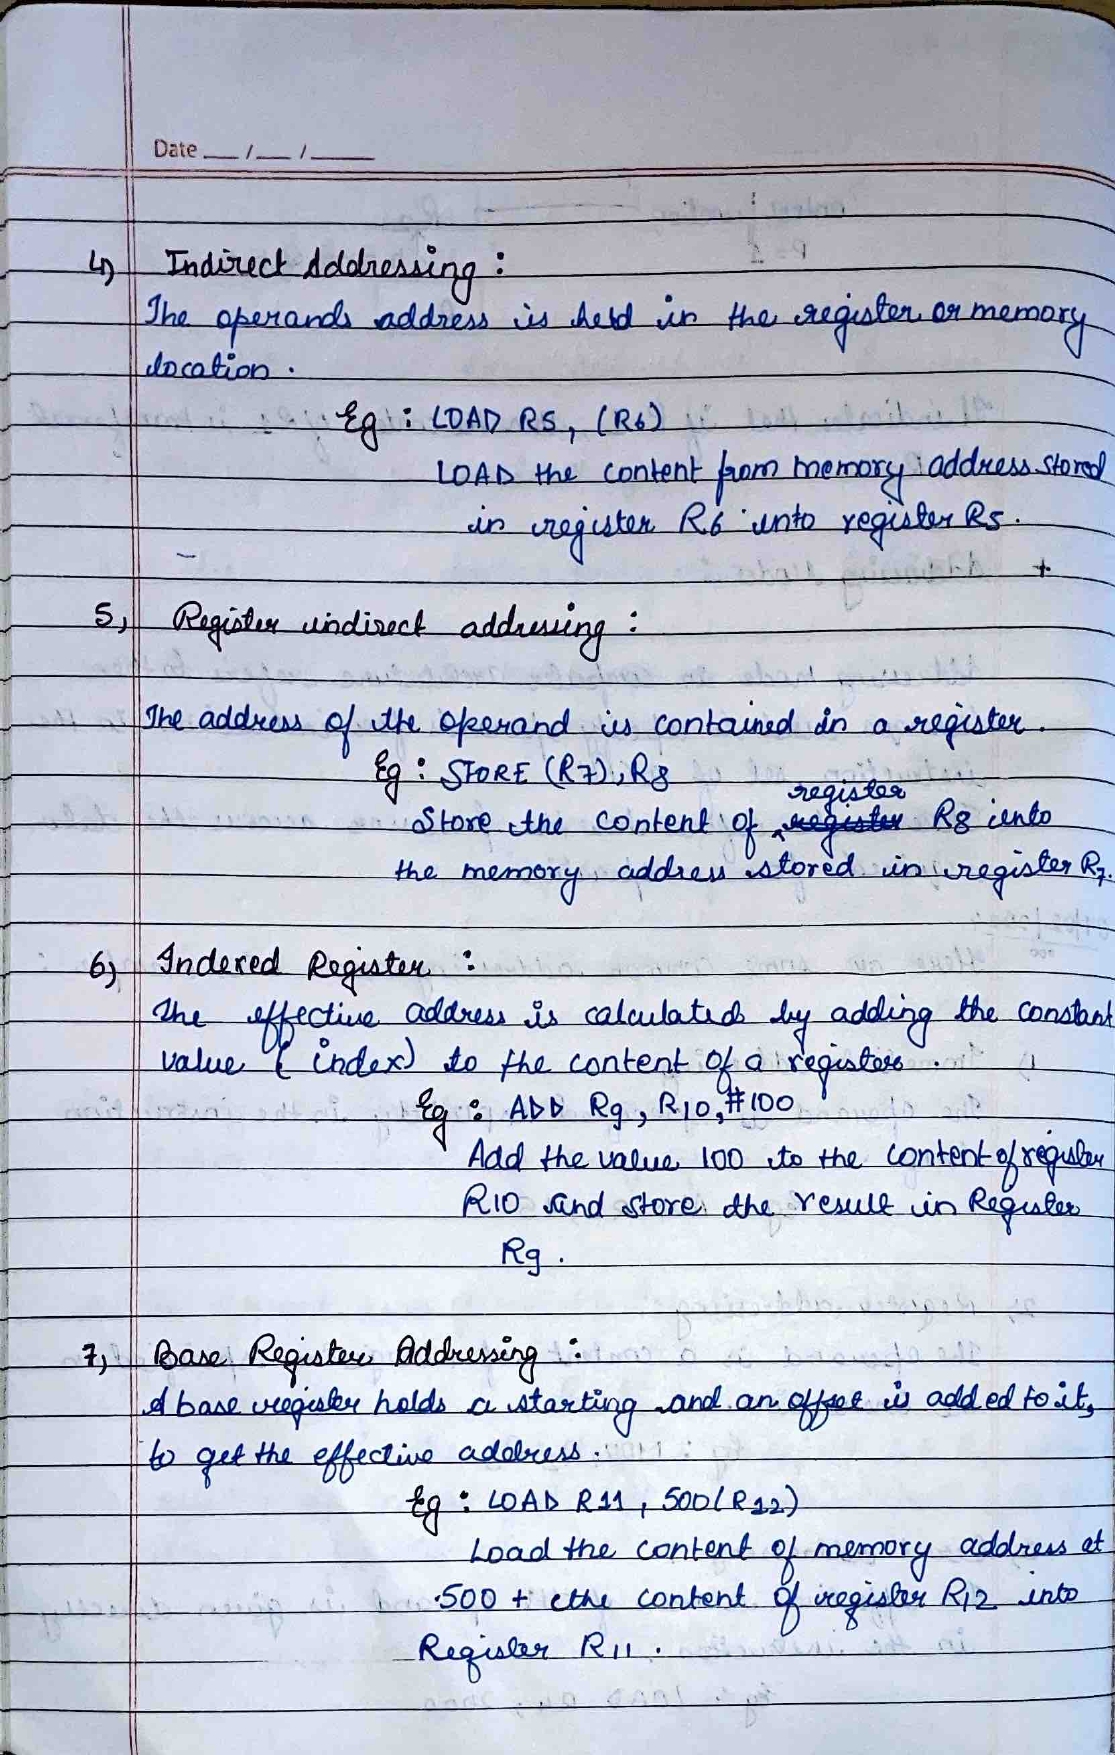 Date __/__/____
4) Indirect Addressing :
The operands address is held in the register or memory
location .
Eg : LOAD R5, (R6)
LOAD the content from memory address stored
in register R6 into register R5.
5) Register indirect addressing :
The address of the operand is contained in a register .
Eg : STORE (R7), R8
register
Store the content of register R8 into
the memory address stored in register R7.
6) Indexed Register :
The effective address is calculated by adding the constant
value (index) to the content of a register .
Eg : ADD R9, R10, #100
Add the value 100 to the content of register
R10 and store the result in Register
R9 .
7) Base Register Addressing :
A base register holds a starting and an offset is added to it,
to get the effective address .
Eg : LOAD R11, 500(R12)
Load the content of memory address at
500 + the content of register R12 into
Register R11 .